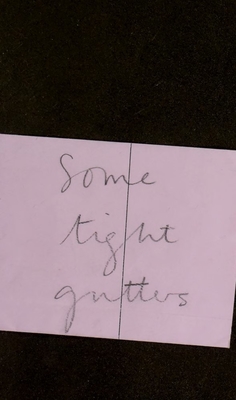 Some
tight
gutters